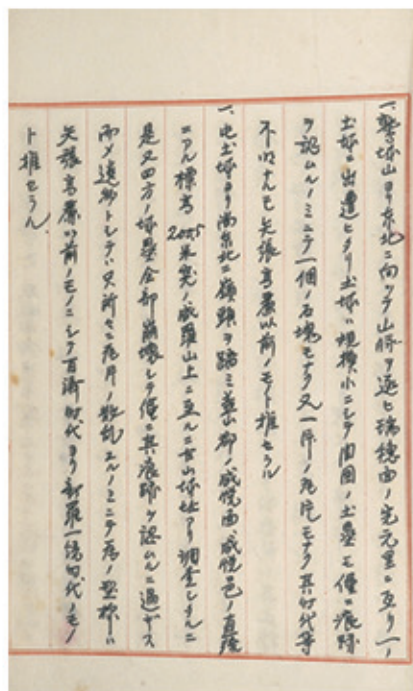 一、鷲峰山ヨリ東北ニ向ツテ山脈ヲ逐ヒ瑞穂面ノ完元里ニ亙リ一ノ
土城ニ出遭ヒタリ土城ハ規模小ニシテ周囲ノ土塁モ僅ニ痕跡
ヲ認ムルノミニテ一個ノ石塊モナク又一片ノ瓦片モナク其時代等
不明ナルモ矢張高麗以前ノモノト推セラル
一、此土城ヨリ尚東北ニ嶺頭ヲ踏ミ益山郡ノ咸悦面咸悦邑ノ直後
ニアル標高2005米突ノ咸羅山上ニ亙ルニ古山城址アリ調査シタルニ
是又四方ノ城塁全部崩壊シテ僅ニ其痕跡ヲ認ムルニ過ギズ
而メ遺物トシテハ只所々ニ瓦片ノ散乱スルノミニテ瓦ノ型称ハ
矢張高麗以前ノモノニシテ百済時代ヨリ新羅一統時代ノモノ
ト推セラル、